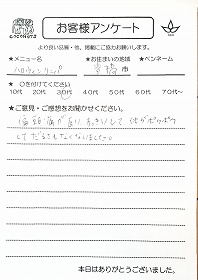 お客様アンケート
より良い品質・他、掲載にご協力お願いします。
★メニュー名 ★お住まいの地域 ★ペンネーム
ハロウィンリンパ 市
★ ○を付けてください
10代 20代 30代 40代 50代 60代 70代~
★ご意見・ご感想をお聞かせください。
偏頭痛が直りすっきりして体がポカポカ
してだるさもなくなりました。
本日はありがとうございました。